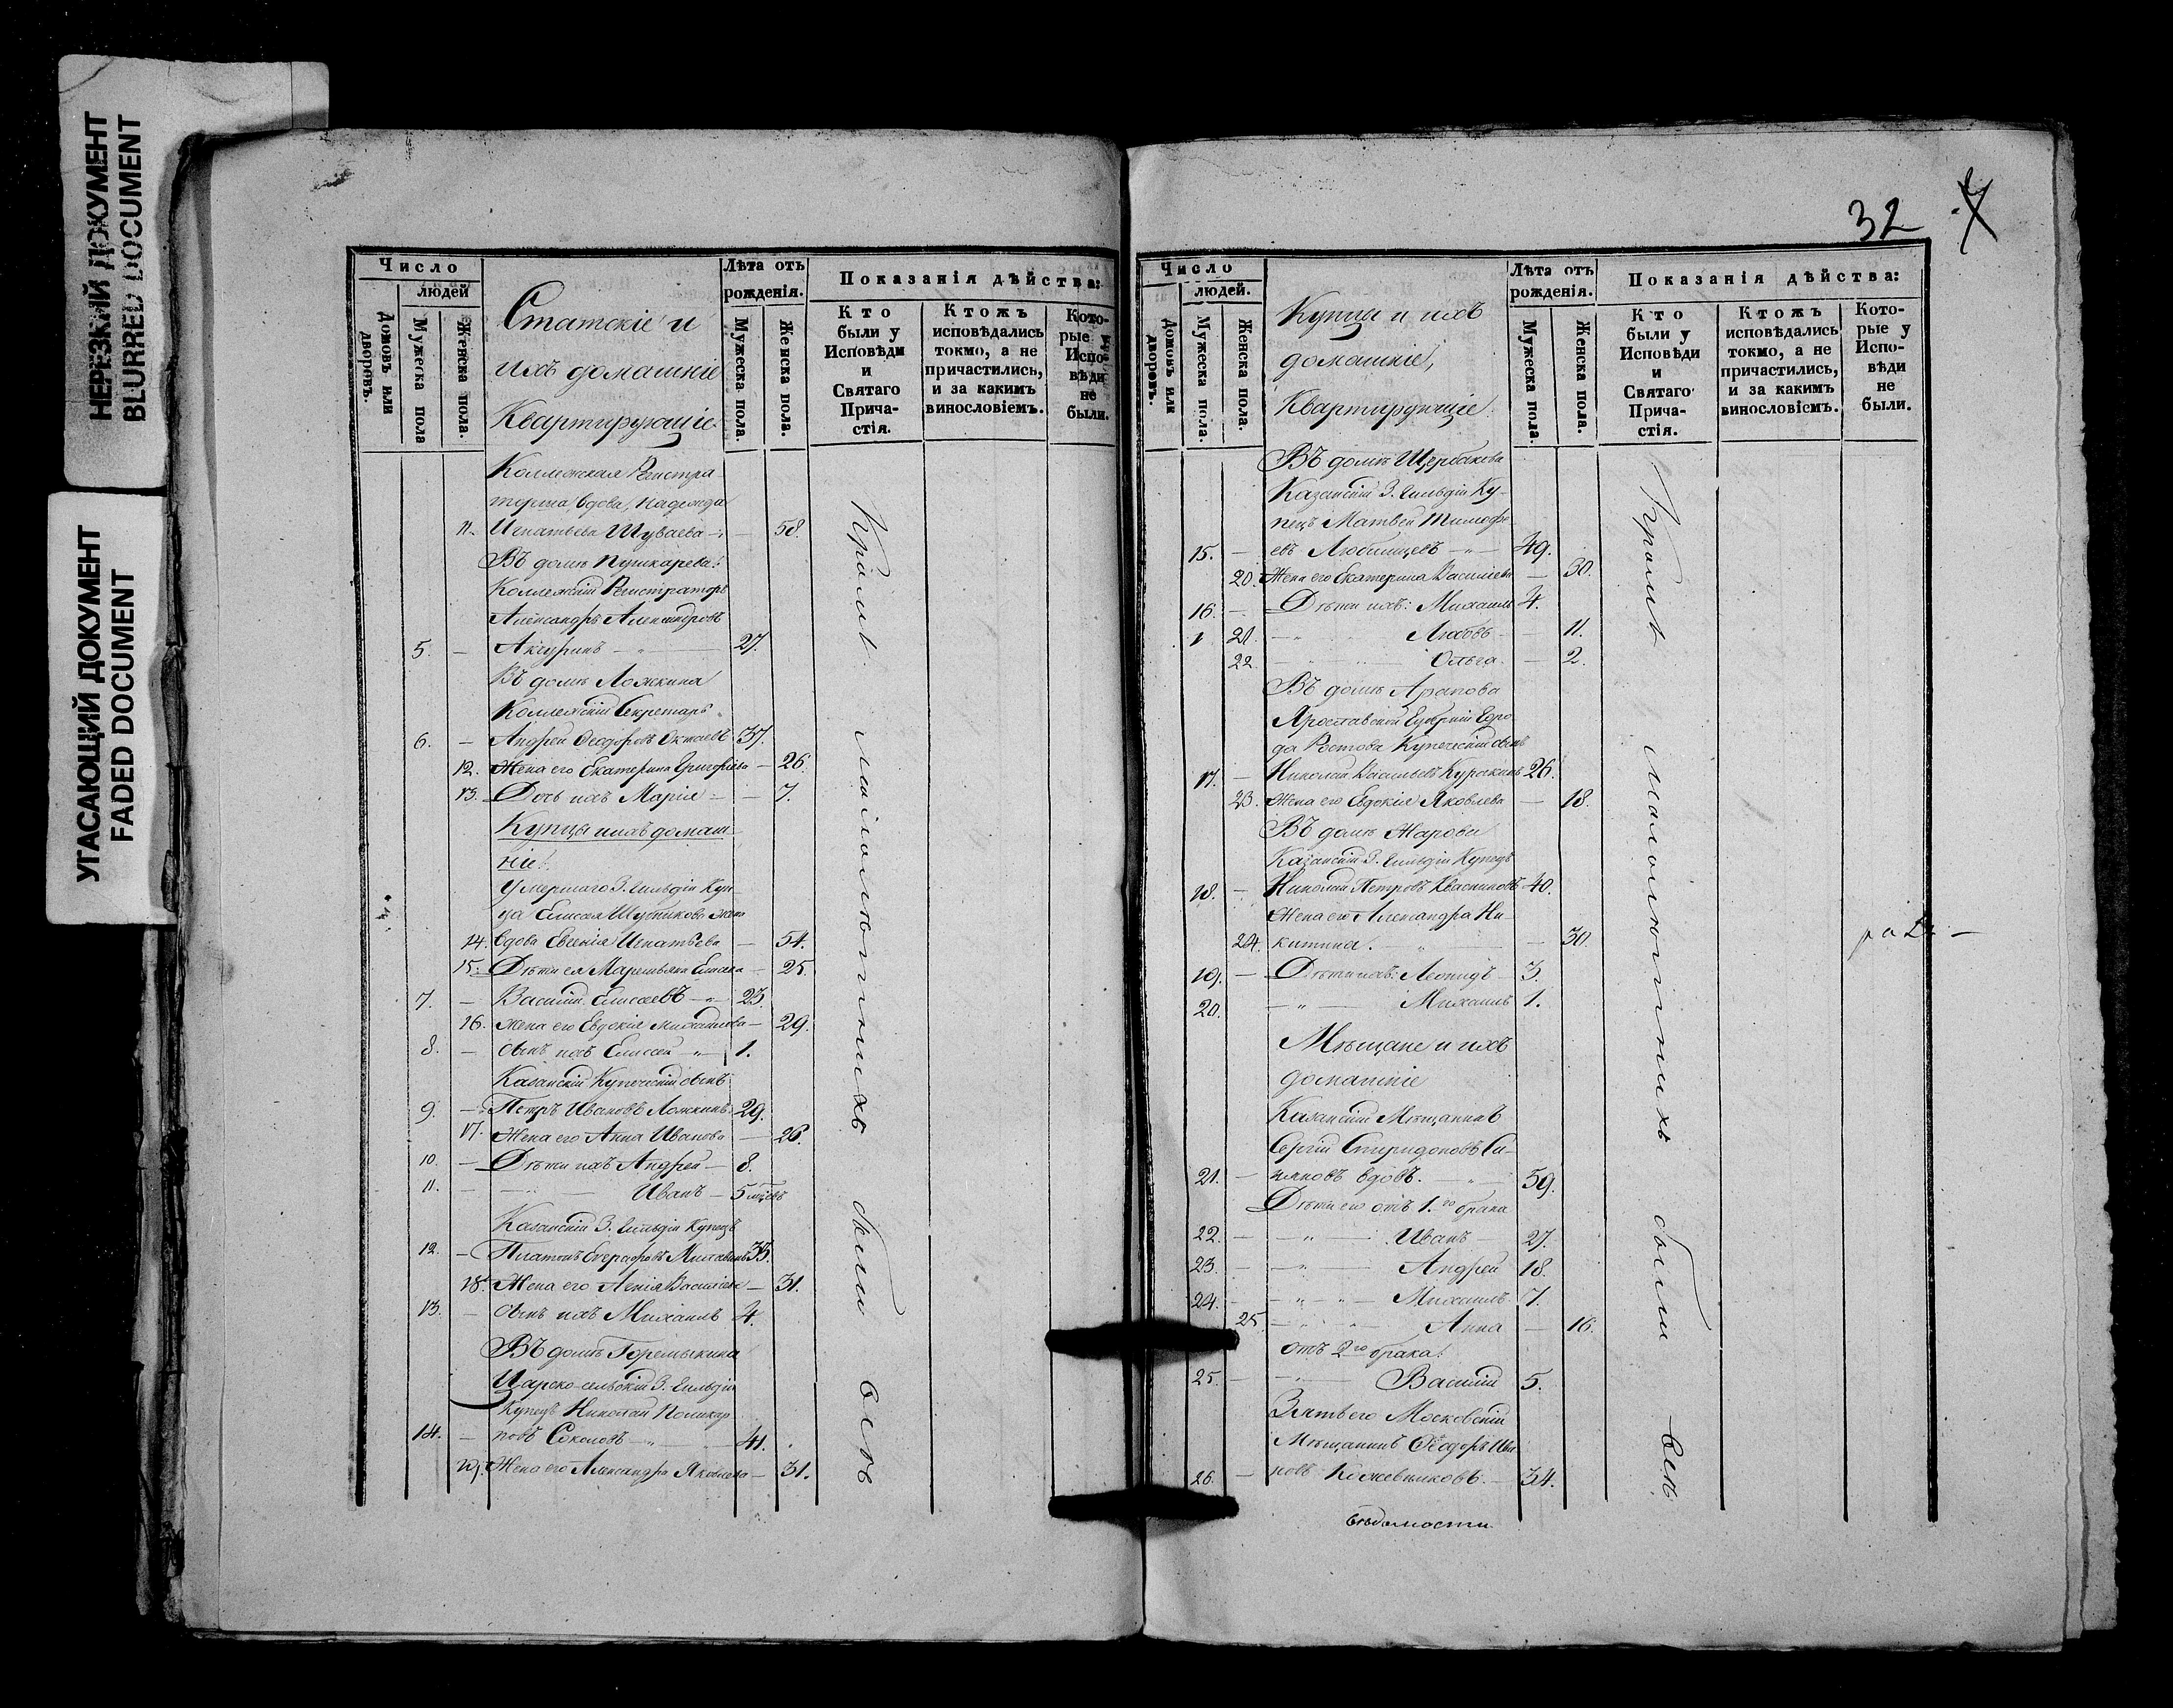 НЕРЕЗКИЙ ДОКУМЕНТ
BLURRED DOCUMENT
УГАСАЮЩИЙ ДОКУМЕНТ
FADED DOCUMENT
Число
людей
Домовъ или дворовъ.
Мужеска пола
Женска пола.
Статскіе и
ихъ домашніе
Квартирующіе
Лѣта отъ рожденія.
Мужеска пола.
Женска пола.
Показанія дѣйства:
Кто были у Исповѣди и Святаго Прича-стія.
Ктожъ исповѣдались токмо, а не причастились, и за какимъ винословіемъ.
Кото-рые у Испо-вѣди не были.
Коллежская Регистра
торша, вдова, Надежда
11. Игнатьева Шуваева — 58.
Въ домѣ Пушкарева:
Коллежскій Регистраторъ
Александръ Александровъ
5. — Акчуринъ — 27.
Въ домѣ Ложкина
Коллежскій Секретарь
6. — Андрей Феодоровъ Октаевъ 37.
12. Жена его Екатерина Григорьева — 26.
13. Дочь ихъ Марія — 7.
Купцы и ихъ домаш
ніе.
Умершаго 3. гильдіи Куп
ца Елисея Шубникова жена
14. вдова Евгенія Игнатьева — 54.
15. Дѣти ея Елисева — 25.
7. — Василій Елисеевъ — 23.
16. Жена его Евдокія Михайлова — 29.
8. — Сынъ ихъ Елисей — 1.
Казанскій Купеческій сынъ
9. — Петръ Ивановъ Ложкинъ 29.
17. Жена его Анна Иванова — 26.
10. — Дѣти ихъ Андрей — 8.
11. — Иванъ — 5 мцевъ
Казанскій 3. гильдіи Купецъ
12. — Платонъ Евграфовъ 35.
18. Жена его Васильева — 31.
13. — Сынъ ихъ Михаилъ 4.
Въ домѣ Горемыкина
Царско-сельскій 3. гильдіи
Купецъ Николай Поликар
14. — повъ Соколовъ — 41.
19. Жена его Александра Яковлева — 31.
Кромѣ малолѣтнихъ были всѣ
32
7
Число
людей.
Домовъ или дворовъ.
Мужеска пола.
Женска пола.
Купцы и ихъ
домашніе,
Квартирующіе.
Лѣта отъ рожденія.
Мужеска пола.
Женска пола.
Показанія дѣйства:
Кто были у Исповѣди и Святаго Прича-стія.
Ктожъ исповѣдались токмо, а не причастились, и за какимъ винословіемъ.
Кото-рые у Испо-вѣди не были.
Въ домѣ Щербакова
Казанскій 3. гильдіи Ку-
пецъ Матвей Тимофе
15. — евъ Любимцевъ — 49.
20. Жена его Екатерина Васильева — 30.
16. — Дѣти ихъ: Михаилъ 4.
21. — Любовь — 11.
22. — Ольга — 2.
Въ домѣ Арапова
Ярославской Губерніи Горо
да Ростова Купеческій сынъ
17. — Николай Васильевъ Куракинъ 26.
23. Жена его Евдокія Яковлева — 18.
Въ домѣ Жарова
Казанскій 3. гильдіи Купецъ
18. — Николай Петровъ Квасниковъ 40.
Жена его Александра Ни-
24. китина. — 30.
19. — Дѣти ихъ: Леонидъ 3.
20. — Михаилъ 1.
Мѣщане и ихъ
домашніе
Казанскій Мѣщанинъ
Сергій Спиридоновъ Си-
21. — няковъ вдовъ. — 59.
Дѣти его отъ 1.го брака
22. — Иванъ 27.
23. — Андрей 18.
24. — Михаилъ 7.
25. — Анна — 16.
отъ 2го брака:
25. — Василій 5.
Зять его Московскій
Мѣщанинъ Феодоръ Ива
26. — новъ Кожевниковъ. — 34.
Кромѣ малолѣтнихъ были всѣ
вѣдомости